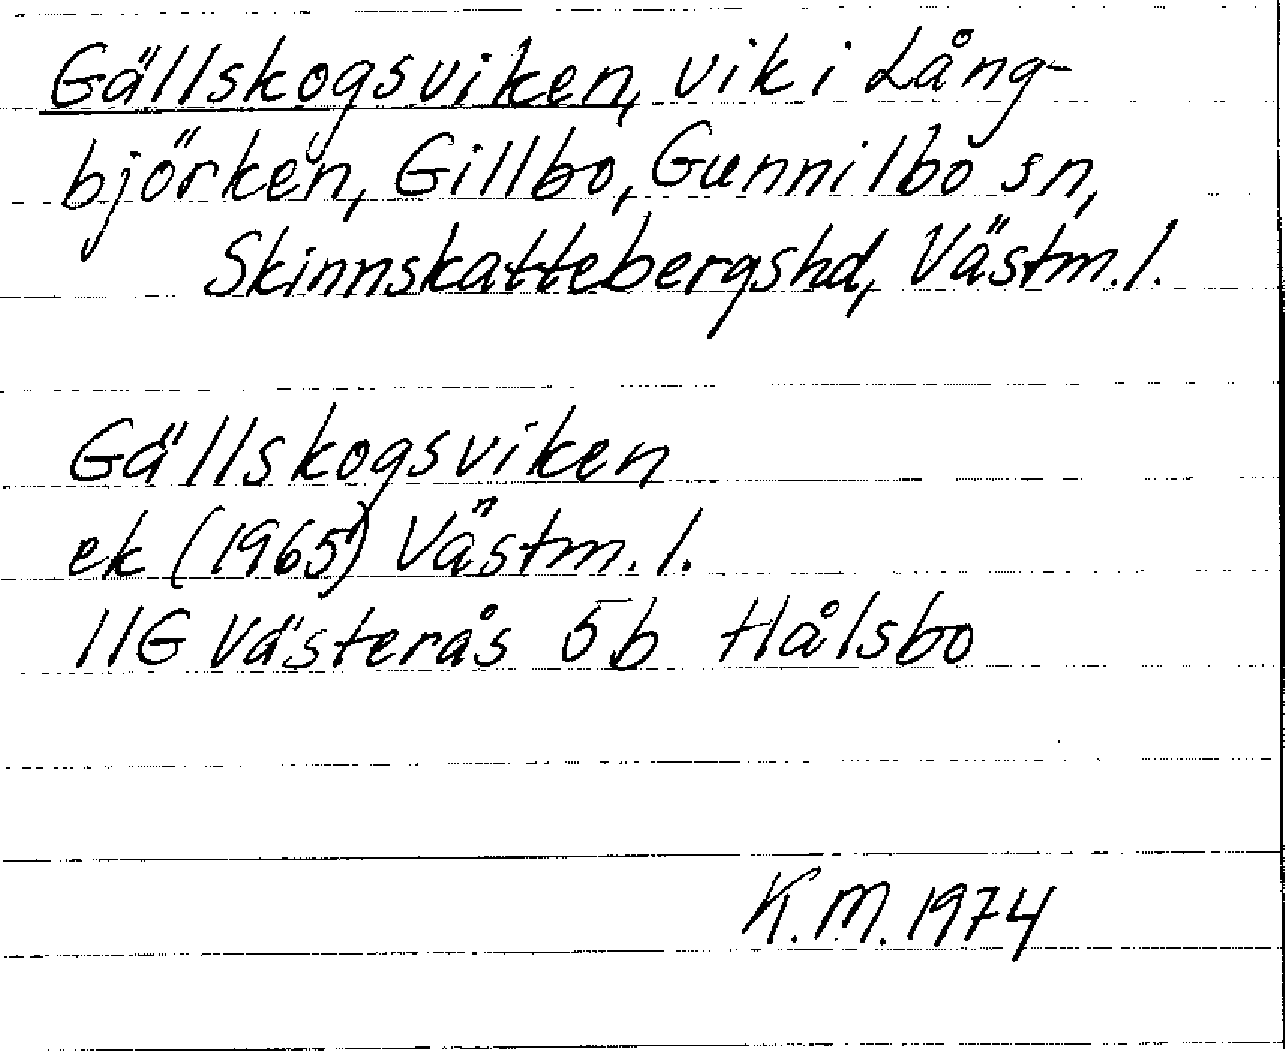 Gällskogsviken, vik i Lång-
björken, Gillbo, Gunnilbo sn,
Skinnskattebergshd, Västm. l.
Gällskogsviken
ek (1965) Västm. l.
11G Västerås 5b Hålsbo
K.M. 1974